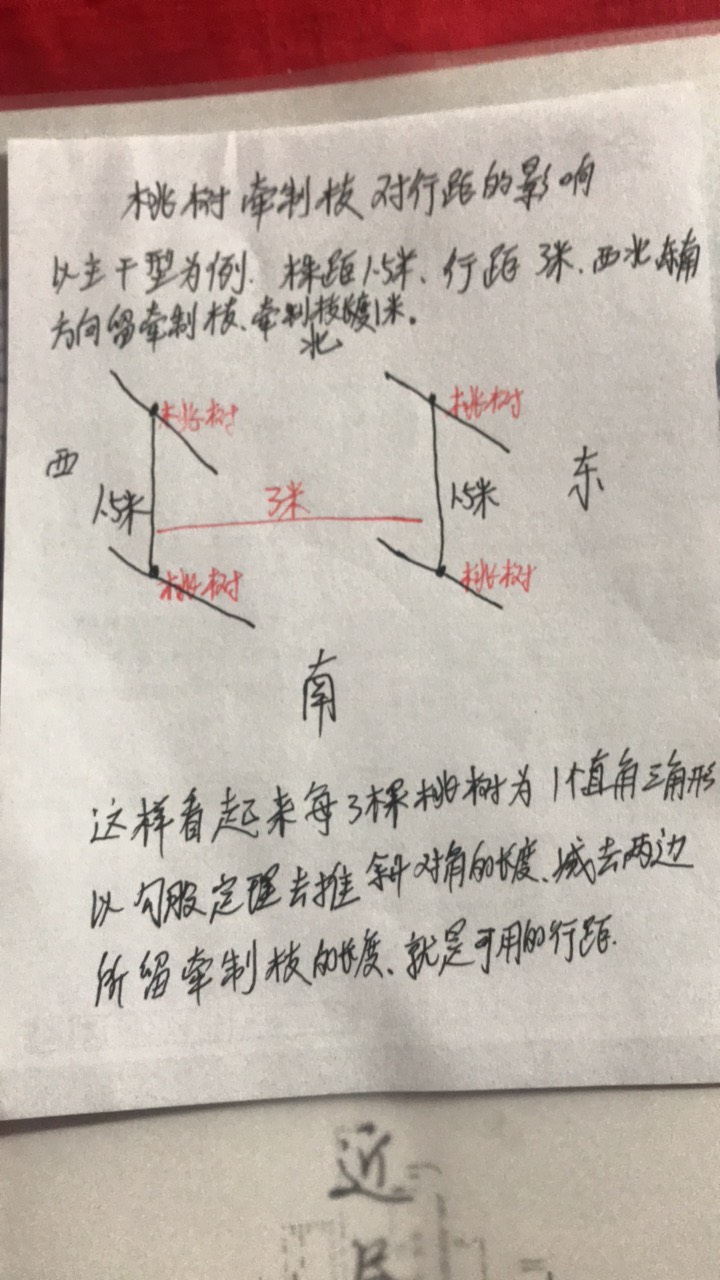 桃树牵制枝对行距的影响
以主干型为例.株距1.5米、行距3米、西北东南
方向留牵制枝、牵制枝长度1米。
北
桃树
桃树
西
东
1.5米
3米
1.5米
桃树
桃树
南
这样看起来每3棵桃树为1个直角三角形
以勾股定理去推斜对角的长度、减去两边
所留牵制枝的长度、就是可用的行距.
近